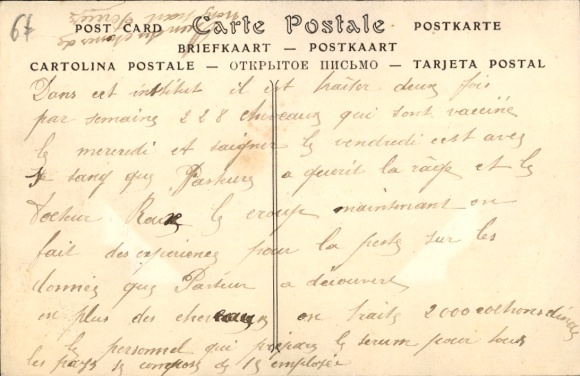 67
POST CARD Carte Postale POSTKARTE
BRIEFKAART — POSTKAART
CARTOLINA POSTALE — ОТКРЫТОЕ ПИСЬМО — TARJETA POSTAL
Dans cet institut il est traiter deux fois
par semaine 228 chevaux qui sont vacciné
le mercredi et saigner le vendredi cest avec
le sang que Pasteur a guerit la rage et le
Docteur Roux le croup maintenant on
fait des experience pour la peste sur les
donnée que Pasteur a découvert
en plus des chevaux on traite 2000 cochons dinde
le personnel qui prepare le serum pour tous
les pays se compose de 15 employée